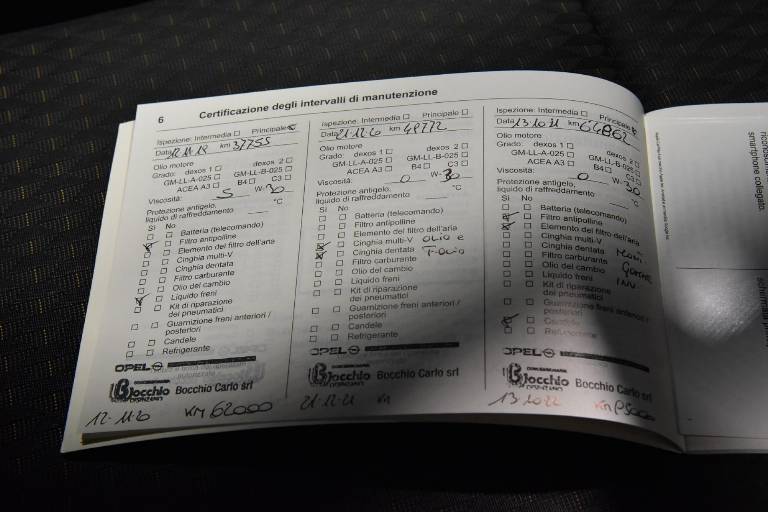 6
Certificazione degli intervalli di manutenzione
Ispezione: Intermedia Principale
Data 12.11.19 km 37755
Olio motore
Grado: dexos 1 dexos 2
GM-LL-A-025 GM-LL-B-025
ACEA A3 B4 C3
Viscosità: 5 W-30
Protezione antigelo,
liquido di raffreddamento °C
Sì No
Batteria (telecomando)
Filtro antipolline
Elemento del filtro dell'aria
Cinghia multi-V
Cinghia dentata
Filtro carburante
Olio del cambio
Liquido freni
Kit di riparazione
dei pneumatici
Guarnizione freni anteriori /
posteriori
Candele
Refrigerante
OPEL
Bocchio Bocchio Carlo srl
12-11-20 KM 62000
Ispezione: Intermedia Principale
Data 21.12.20 km 49772
Olio motore
Grado: dexos 1 dexos 2
GM-LL-A-025 GM-LL-B-025
ACEA A3 B4 C3
Viscosità: 0 W-30
Protezione antigelo,
liquido di raffreddamento °C
Sì No
Batteria (telecomando)
Filtro antipolline
Elemento del filtro dell'aria
Cinghia multi-V olio e
Cinghia dentata F-olio
Filtro carburante
Olio del cambio
Liquido freni
Kit di riparazione
dei pneumatici
Guarnizione freni anteriori /
posteriori
Candele
Refrigerante
OPEL
Bocchio Bocchio Carlo srl
21-12-21 KM
Ispezione: Intermedia Principale
Data 13.10.21 km 64862
Olio motore
Grado: dexos 1 dexos 2
GM-LL-A-025 GM-LL-B-025
ACEA A3 B4 C3
Viscosità: 0 W-30
Protezione antigelo,
liquido di raffreddamento °C
Sì No
Batteria (telecomando)
Filtro antipolline
Elemento del filtro dell'aria
Cinghia multi-V
Cinghia dentata
Filtro carburante
Olio del cambio Gomme
Liquido freni INV.
Kit di riparazione
dei pneumatici
Guarnizione freni anteriori /
posteriori
Candele
Refrigerante
OPEL
Bocchio Bocchio Carlo srl
13 10 22 KM
smartphone collegato.